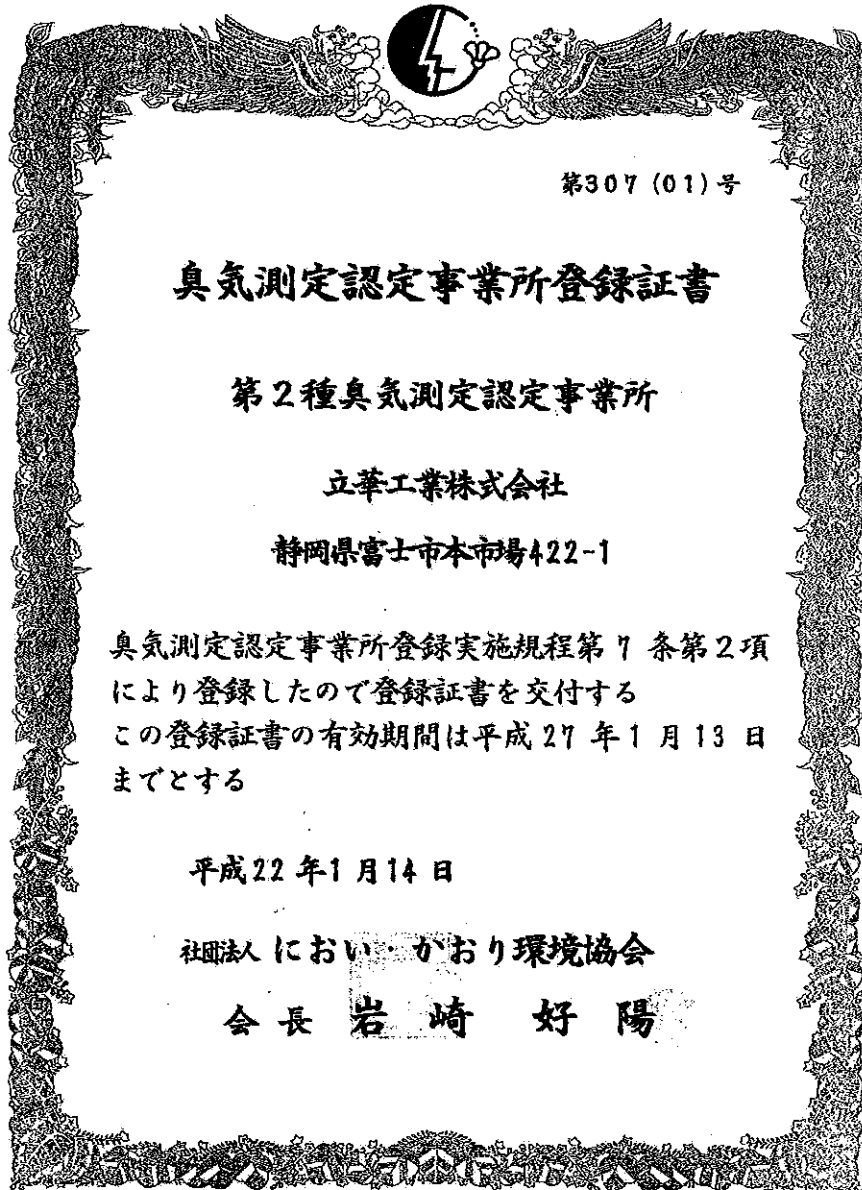 第307(01)号
臭気測定認定事業所登録証書
第2種臭気測定認定事業所
立華工業株式会社
静岡県富士市本市場422-1
臭気測定認定事業所登録実施規程第7条第2項
により登録したので登録証書を交付する
この登録証書の有効期間は平成27年1月13日
までとする
平成22年1月14日
社団法人におい・かおり環境協会
会長 岩崎好陽